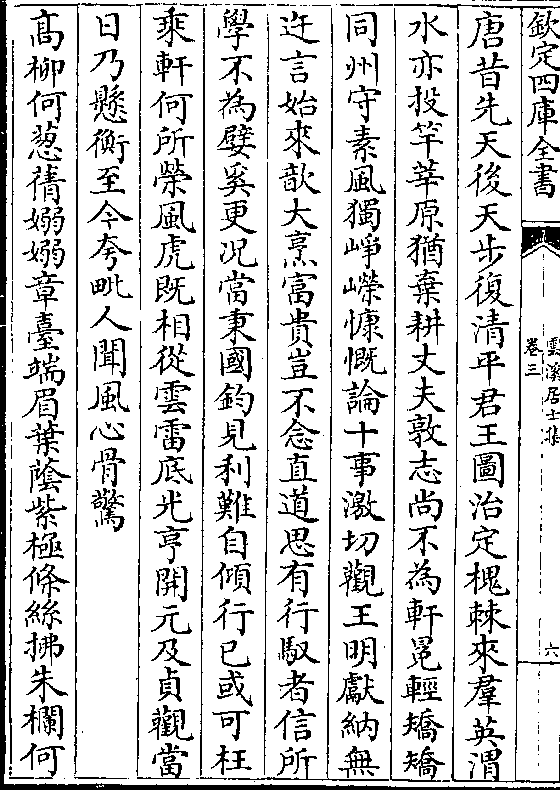 欽定四庫全書
雲溪居士集
卷三
六
唐昔先天後天步復清平君王圖治定槐棘來羣英渭
水亦投竿莘原猶棄耕丈夫敦志尚不為軒冕輕矯矯
同州守素風獨崢嶸慷慨論十事激切觀王明獻納無
迕言始來歆大烹富貴豈不念直道思有行馭者信所
學不為嬖奚更况當秉國鈞見利難自傾行已或可枉
乘軒何所榮風虎既相從雲雷底光亨開元及貞觀當
日乃懸衡至今夸毗人聞風心骨驚
髙柳何蔥蒨嫋嫋章臺端眉葉蔭紫極條絲拂朱欄何